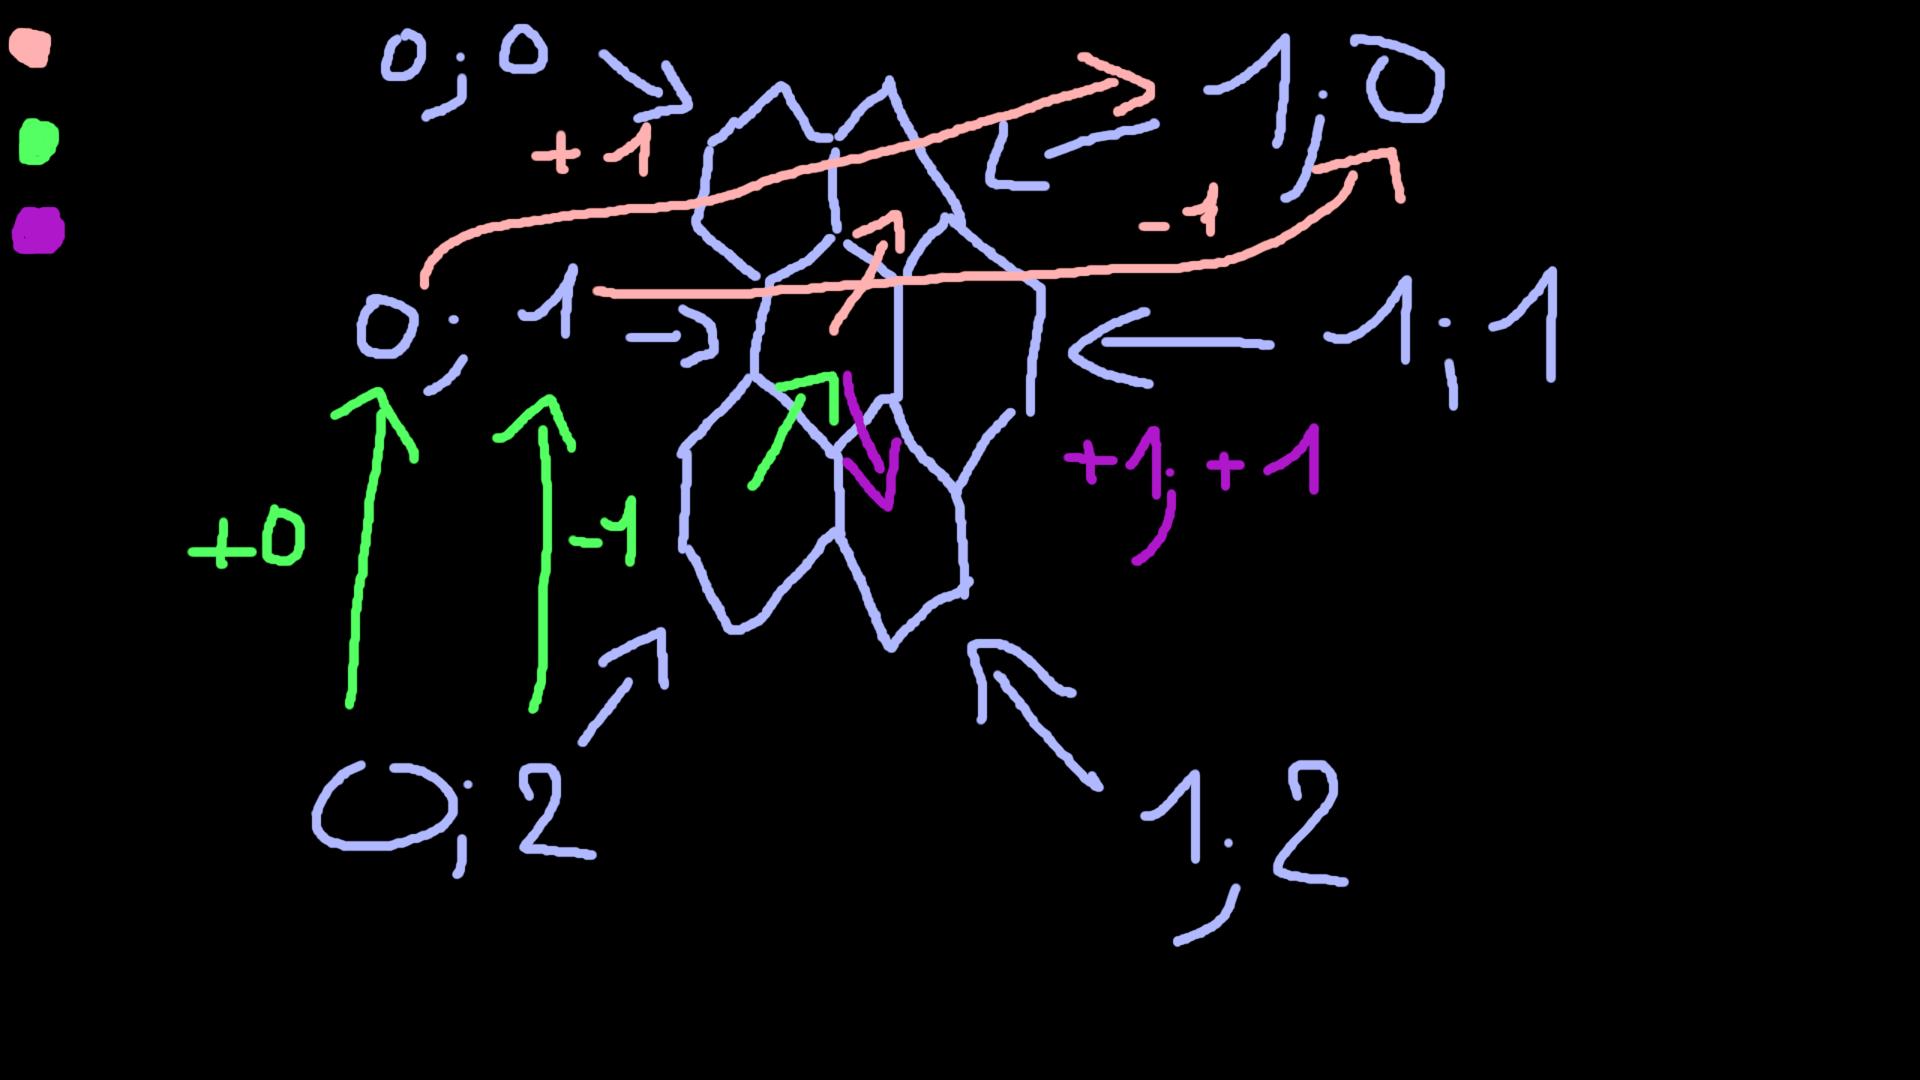 0; 0
1; 0
+1
-1
0; 1
1; 1
+1; +1
+0
-1
0; 2
1; 2